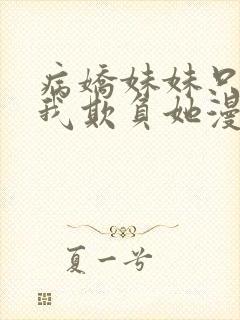 病嬌妹妹只
我欺負她漫
夏一兮